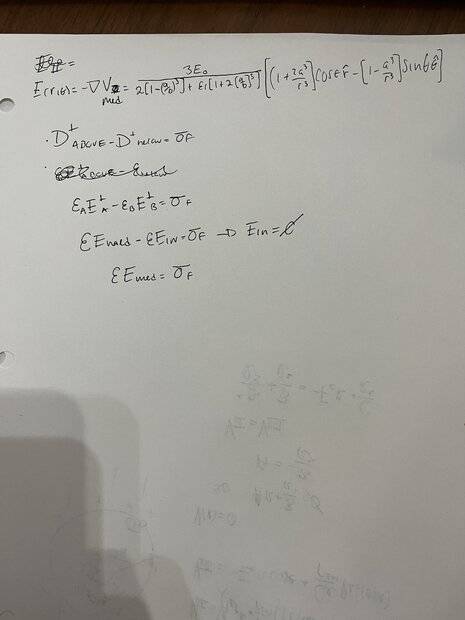 E(r,θ) = -∇V_med = 3E₀ / (2[1-(a/b)³] + εr[1+2(a/b)³]) [(1+2a³/r³]cosθ r̂ - [1-a³/r³]sinθ θ̂]
· D⊥ABOVE - D⊥Below = σF
εA E⊥A - εB E⊥B = σF
εEmed - εEIN = σF → EIn = 0
εEmed = σF